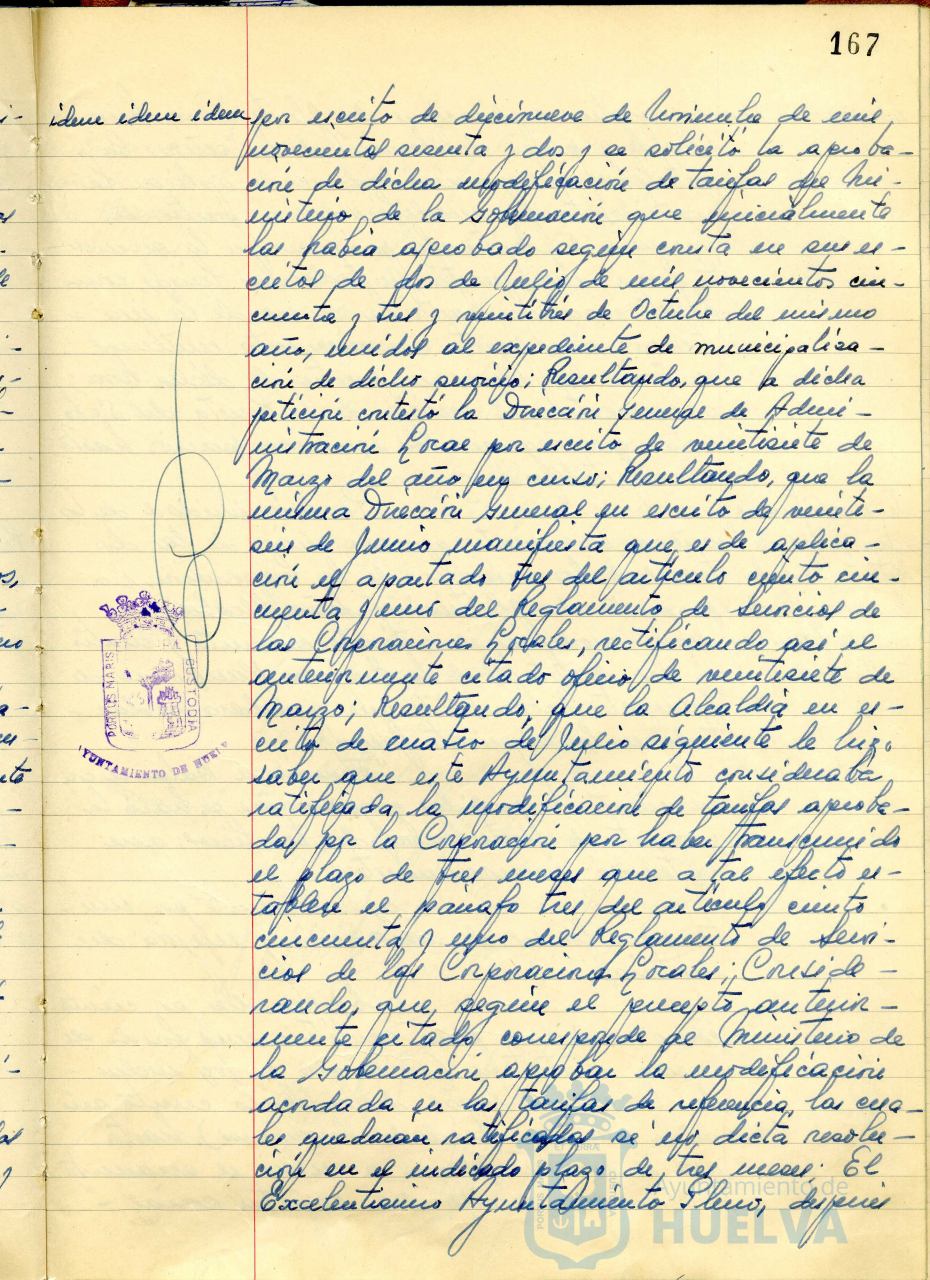 167
idem idem idem
por escrito de diecinueve de Noviembre de mil
novecientos sesenta y dos y se solicitó la aproba-
ción de dicha modificación de tarifas del Mi-
nisterio de la Gobernación que inicialmente
las había aprobado según consta en sus es-
critos de dos de Julio de mil novecientos cin-
cuenta y tres y veintitrés de Octubre del mismo
año, unidos al expediente de municipaliza-
ción de dicho servicio; Resultando, que a dicha
petición contestó la Dirección General de Admi-
nistración Local por escrito de veintisiete de
Marzo del año en curso; Resultando, que la
misma Dirección General en escrito de veinti-
seis de Junio manifiesta que es de aplica-
ción el apartado tres del artículo ciento cin-
cuenta y uno del Reglamento de Servicios de
las Corporaciones Locales, rectificando así el
anteriormente citado oficio de veintisiete de
Marzo; Resultando, que la Alcaldía en es-
crito de cuatro de Julio siguiente le hizo
saber que este Ayuntamiento consideraba
ratificada la modificación de tarifas aproba-
da por la Corporación por haber transcurrido
el plazo de tres meses que a tal efecto es-
tablece el párrafo tres del artículo ciento
cincuenta y uno del Reglamento de Servi-
cios de las Corporaciones Locales; Conside-
rando, que según el precepto anterior-
mente citado corresponde al Ministerio de
la Gobernación aprobar la modificación
acordada en las tarifas de referencia, las cua-
les quedarán ratificadas si no dicta resolu-
ción en el indicado plazo de tres meses. El
Excelentísimo Ayuntamiento Pleno, después
PORTUS MARIS
CUSTODIA
AYUNTAMIENTO DE HUELVA
Ayuntamiento de
HUELVA